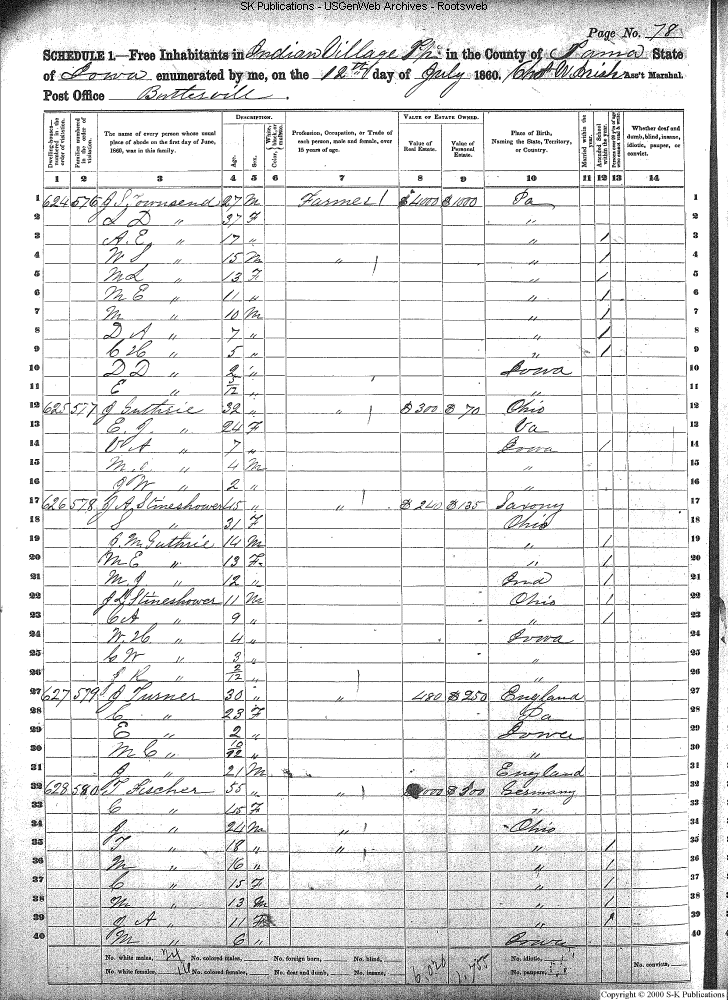 SK Publications - USGenWeb Archives - Rootsweb
Page No. 78
SCHEDULE 1.—Free Inhabitants in Indian Village Tp. in the County of Tama State
of Iowa enumerated by me, on the 12th day of July 1860. Ass't Marshal.
Post Office
DESCRIPTION. VALUE OF ESTATE OWNED.
Dwelling-houses—numbered in the order of visitation. Families numbered in the order of visitation. The name of every person whose usual place of abode on the first day of June, 1860, was in this family. Age. Sex. Color, White, black, or mulatto. Profession, Occupation, or Trade of each person, male and female, over 15 years of age. Value of Real Estate. Value of Personal Estate. Place of Birth, Naming the State, Territory, or Country. Married within the year. Attended School within the year. Persons over 20 y'rs of age who cannot read & write. Whether deaf and dumb, blind, insane, idiotic, pauper, or convict.
1 2 3 4 5 6 7 8 9 10 11 12 13 14
1 624 576 J S Townsend 27 M Farmer 1 $4000 $1000 Pa 1
2 S D " 37 F " 2
3 A. E. " 17 " " / 3
4 W S " 15 M " / " / 4
5 M L " 13 F " / 5
6 M E " 11 " " / 6
7 M " 10 M " / 7
8 D A " 7 " " / 8
9 C H " 5 " " / 9
10 D D " 2 " Iowa 10
11 E " 5/12 " " 11
12 625 577 J Guthrie 32 " " / $300 $70 Ohio 12
13 E. J. " 24 F Va 13
14 V A " 7 " Iowa / 14
15 M. " 4 M " 15
16 J W " 2 " " 16
17 626 578 J A Stineshower 45 " " / $240 $135 Saxony 17
18 S " 31 F Ohio 18
19 C. M. Guthrie 14 M " / 19
20 M E " 13 F " / 20
21 M. J " 12 " Ind / 21
22 J L Stineshower 11 M Ohio / 22
23 C A " 9 " " / 23
24 W. H. " 4 " Iowa 24
25 C W " 3 " " 25
26 J R " 2/12 " " 26
27 627 579 J Turner 30 " " / 480 $250 England 27
28 C. " 23 F Pa 28
29 E " 2 " Iowa 29
30 M C " 10/12 " " 30
31 J " 21 M England 31
32 628 580 T Fischer 55 " " / $300 Germany 32
33 C " 45 F " 33
34 J " 24 M " / Ohio 34
35 T " 18 " " / " / 35
36 M " 16 " " / 36
37 C " 15 F " / 37
38 M " 13 M " / 38
39 J A " 11 F " / 39
40 M " 6 " Iowa 40
No. white males, 24 No. colored males, No. foreign born, No. blind, 6,020 1,755 No. idiotic, No. convict,
No. white females, 16 No. colored females, No. deaf and dumb, No. insane, No. paupers,
Copyright © 2000 S-K Publications